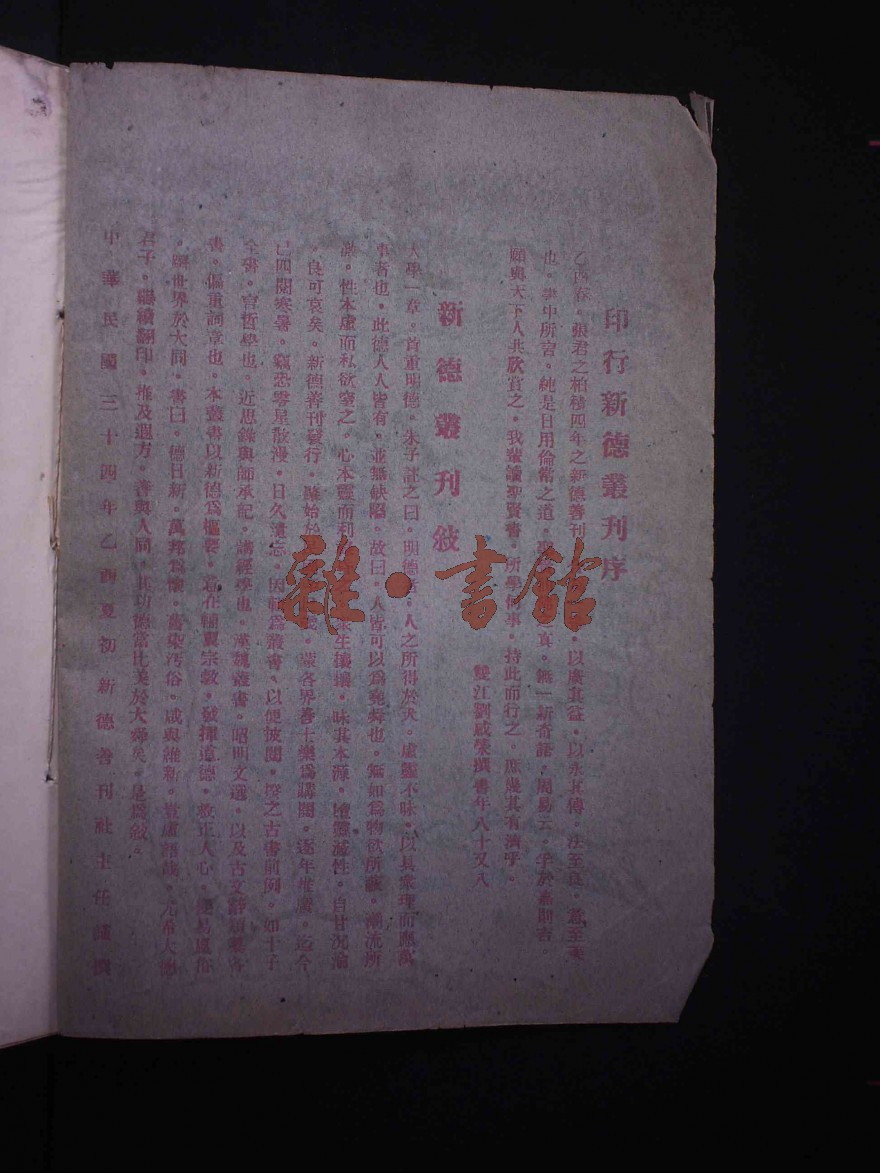 印行新德叢刊序
乙酉春。張君之柏移四年之新德善刊 以廣其益。以永其傳。法至良。意至美
也。書中所言。純是日用倫常之道。 真。無一新奇語。周易云。孚於嘉則吉。
願與天下人共欣賞之。我輩讀聖賢書。所學何事。持此而行之。庶幾其有濟乎。
雙江劉咸榮撰書年八十又八
新德叢刊敘
大學一章。首重明德。朱子註之曰。明德者。人之所得於天。虛靈不昧。以具衆理而應萬
事者也。此德人人皆有。並無缺陷。故曰。人皆可以為堯舜也。無如為物欲所蔽。潮流所
性本虛而私欲窒之。心本靈而利 衆生攘攘。昧其本源。 靈滅性。自甘沉淪
。良可哀矣。新德善刊發行。肇始於 蒙各界善士樂為購閱。逐年推廣。迄今
已四閱寒暑。竊恐零星散漫。日久遺忘。因輯為叢書。以便披閱。 之古書前例。如十子
全書。言哲學也。近思錄與師承記。講經學也。漢魏叢書。昭明文選。以及古文辭類纂各
書。偏重詞章也。本叢書以新德為樞要。意在輔翼宗教。發揮道德。救正人心。 易風俗
。躋世界於大同。書曰。德日新。萬邦為懷。舊染汚俗。咸與維新。豈虛語哉。尤希大德
君子。繼續翻印。推及遐方。善與人同。其功德當比美於大舜矣。是為敘。
中華民國三十四年乙酉夏初新德善刊社主任謹撰
雜·書館